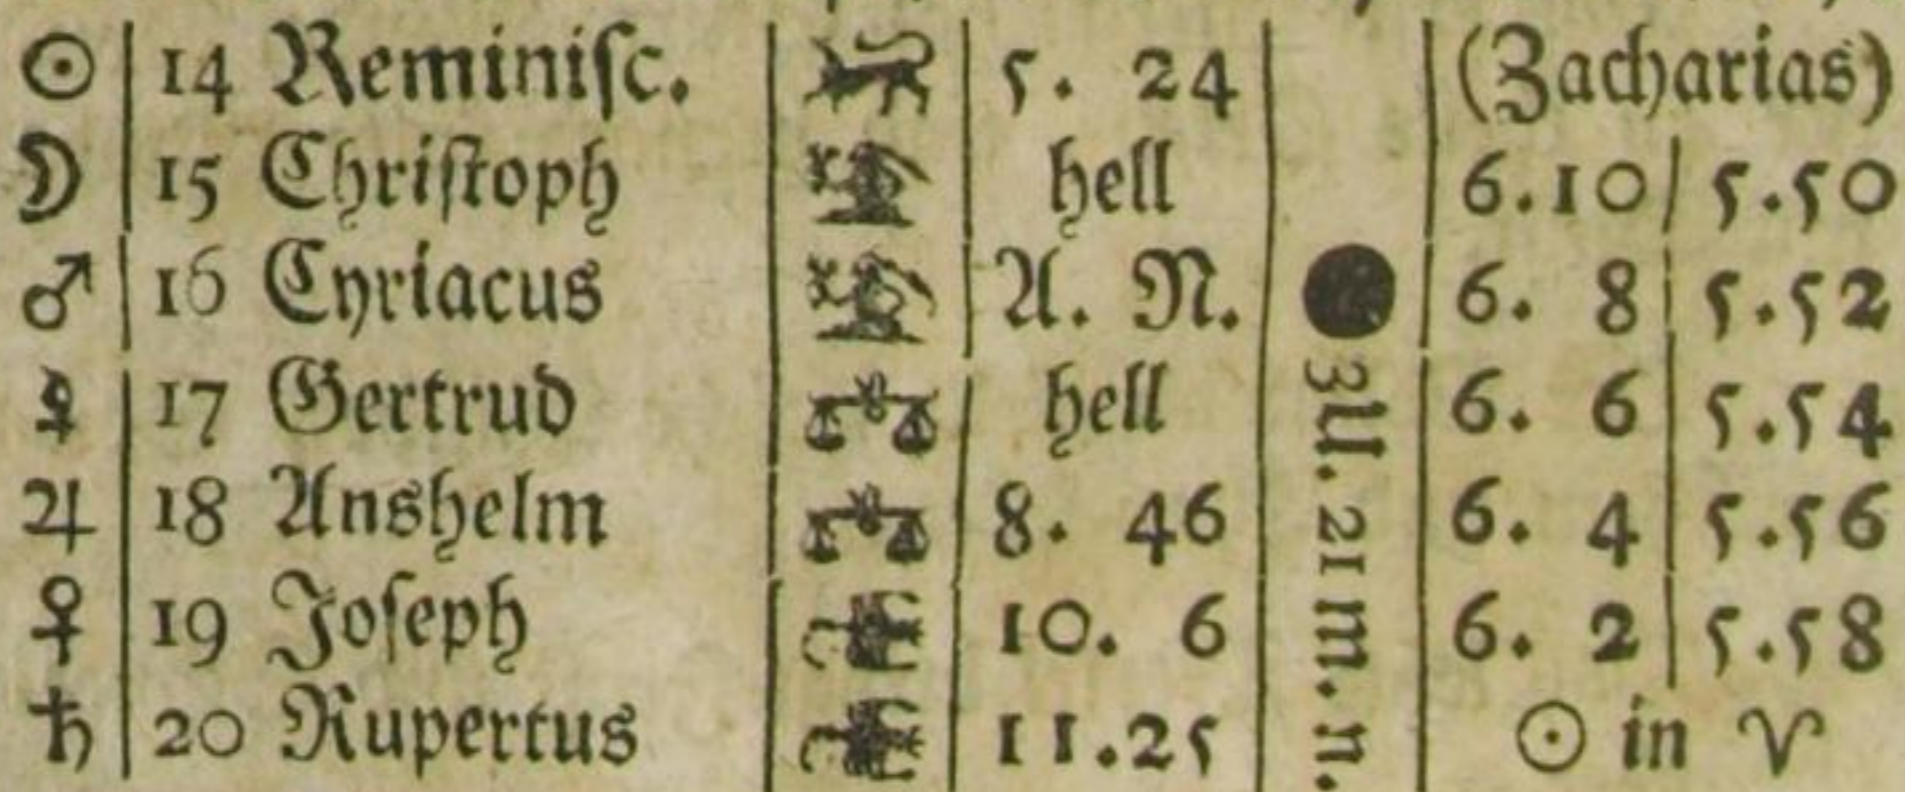 ☉ 14 Reminiſc. 5. 24 (Zacharias)
☽ 15 Chriſtoph hell 6.10 5.50
♂ 16 Cyriacus A. N. 6. 8 5.52
☿ 17 Gertrud hell 6. 6 5.54
♃ 18 Anshelm 8. 46 6. 4 5.56
♀ 19 Joſeph 10. 6 6. 2 5.58
♄ 20 Rupertus 11.25 ☉ in ♈
● 3 U. 21 m. n.